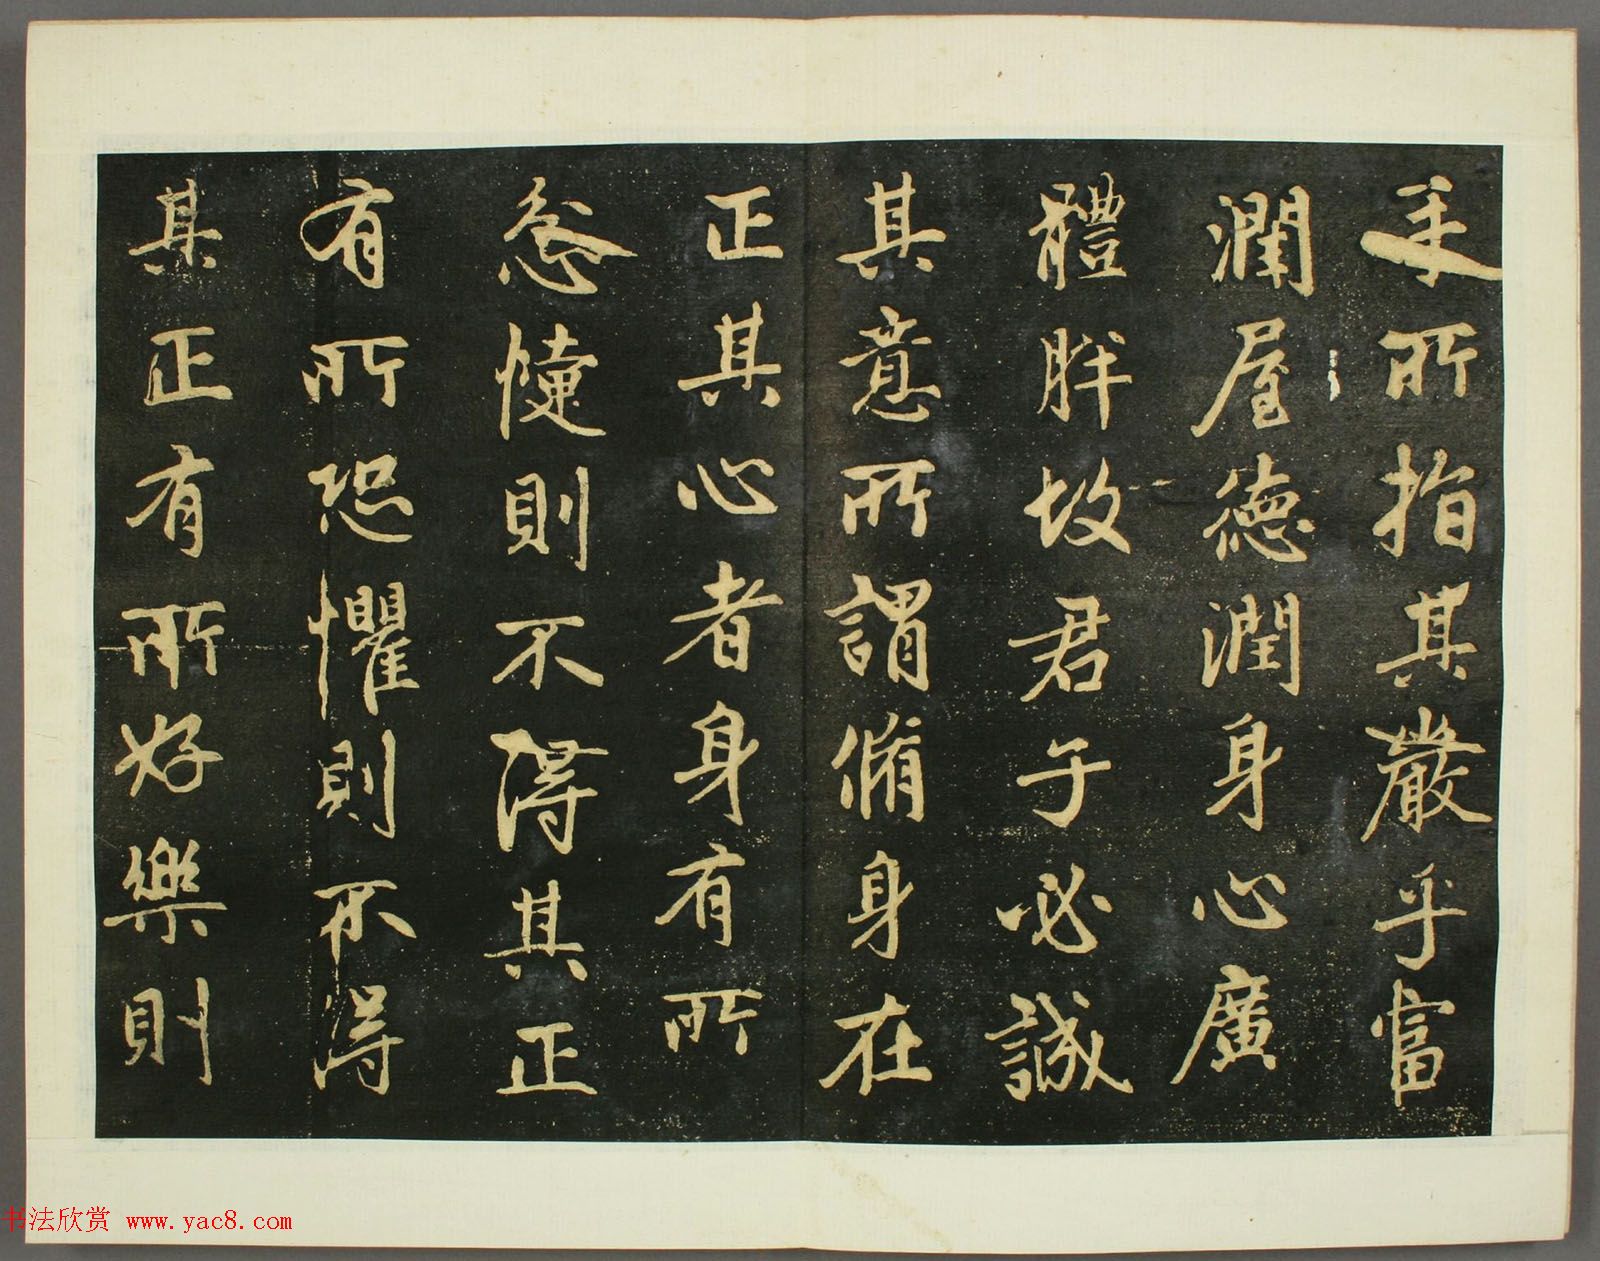 手所指其嚴乎富
潤屋德潤身心廣
體胖故君子必誠
其意所謂脩身在
正其心者身有所
忿懥則不得其正
有所恐懼則不得
其正有所好樂則
书法欣赏 www.yac8.com